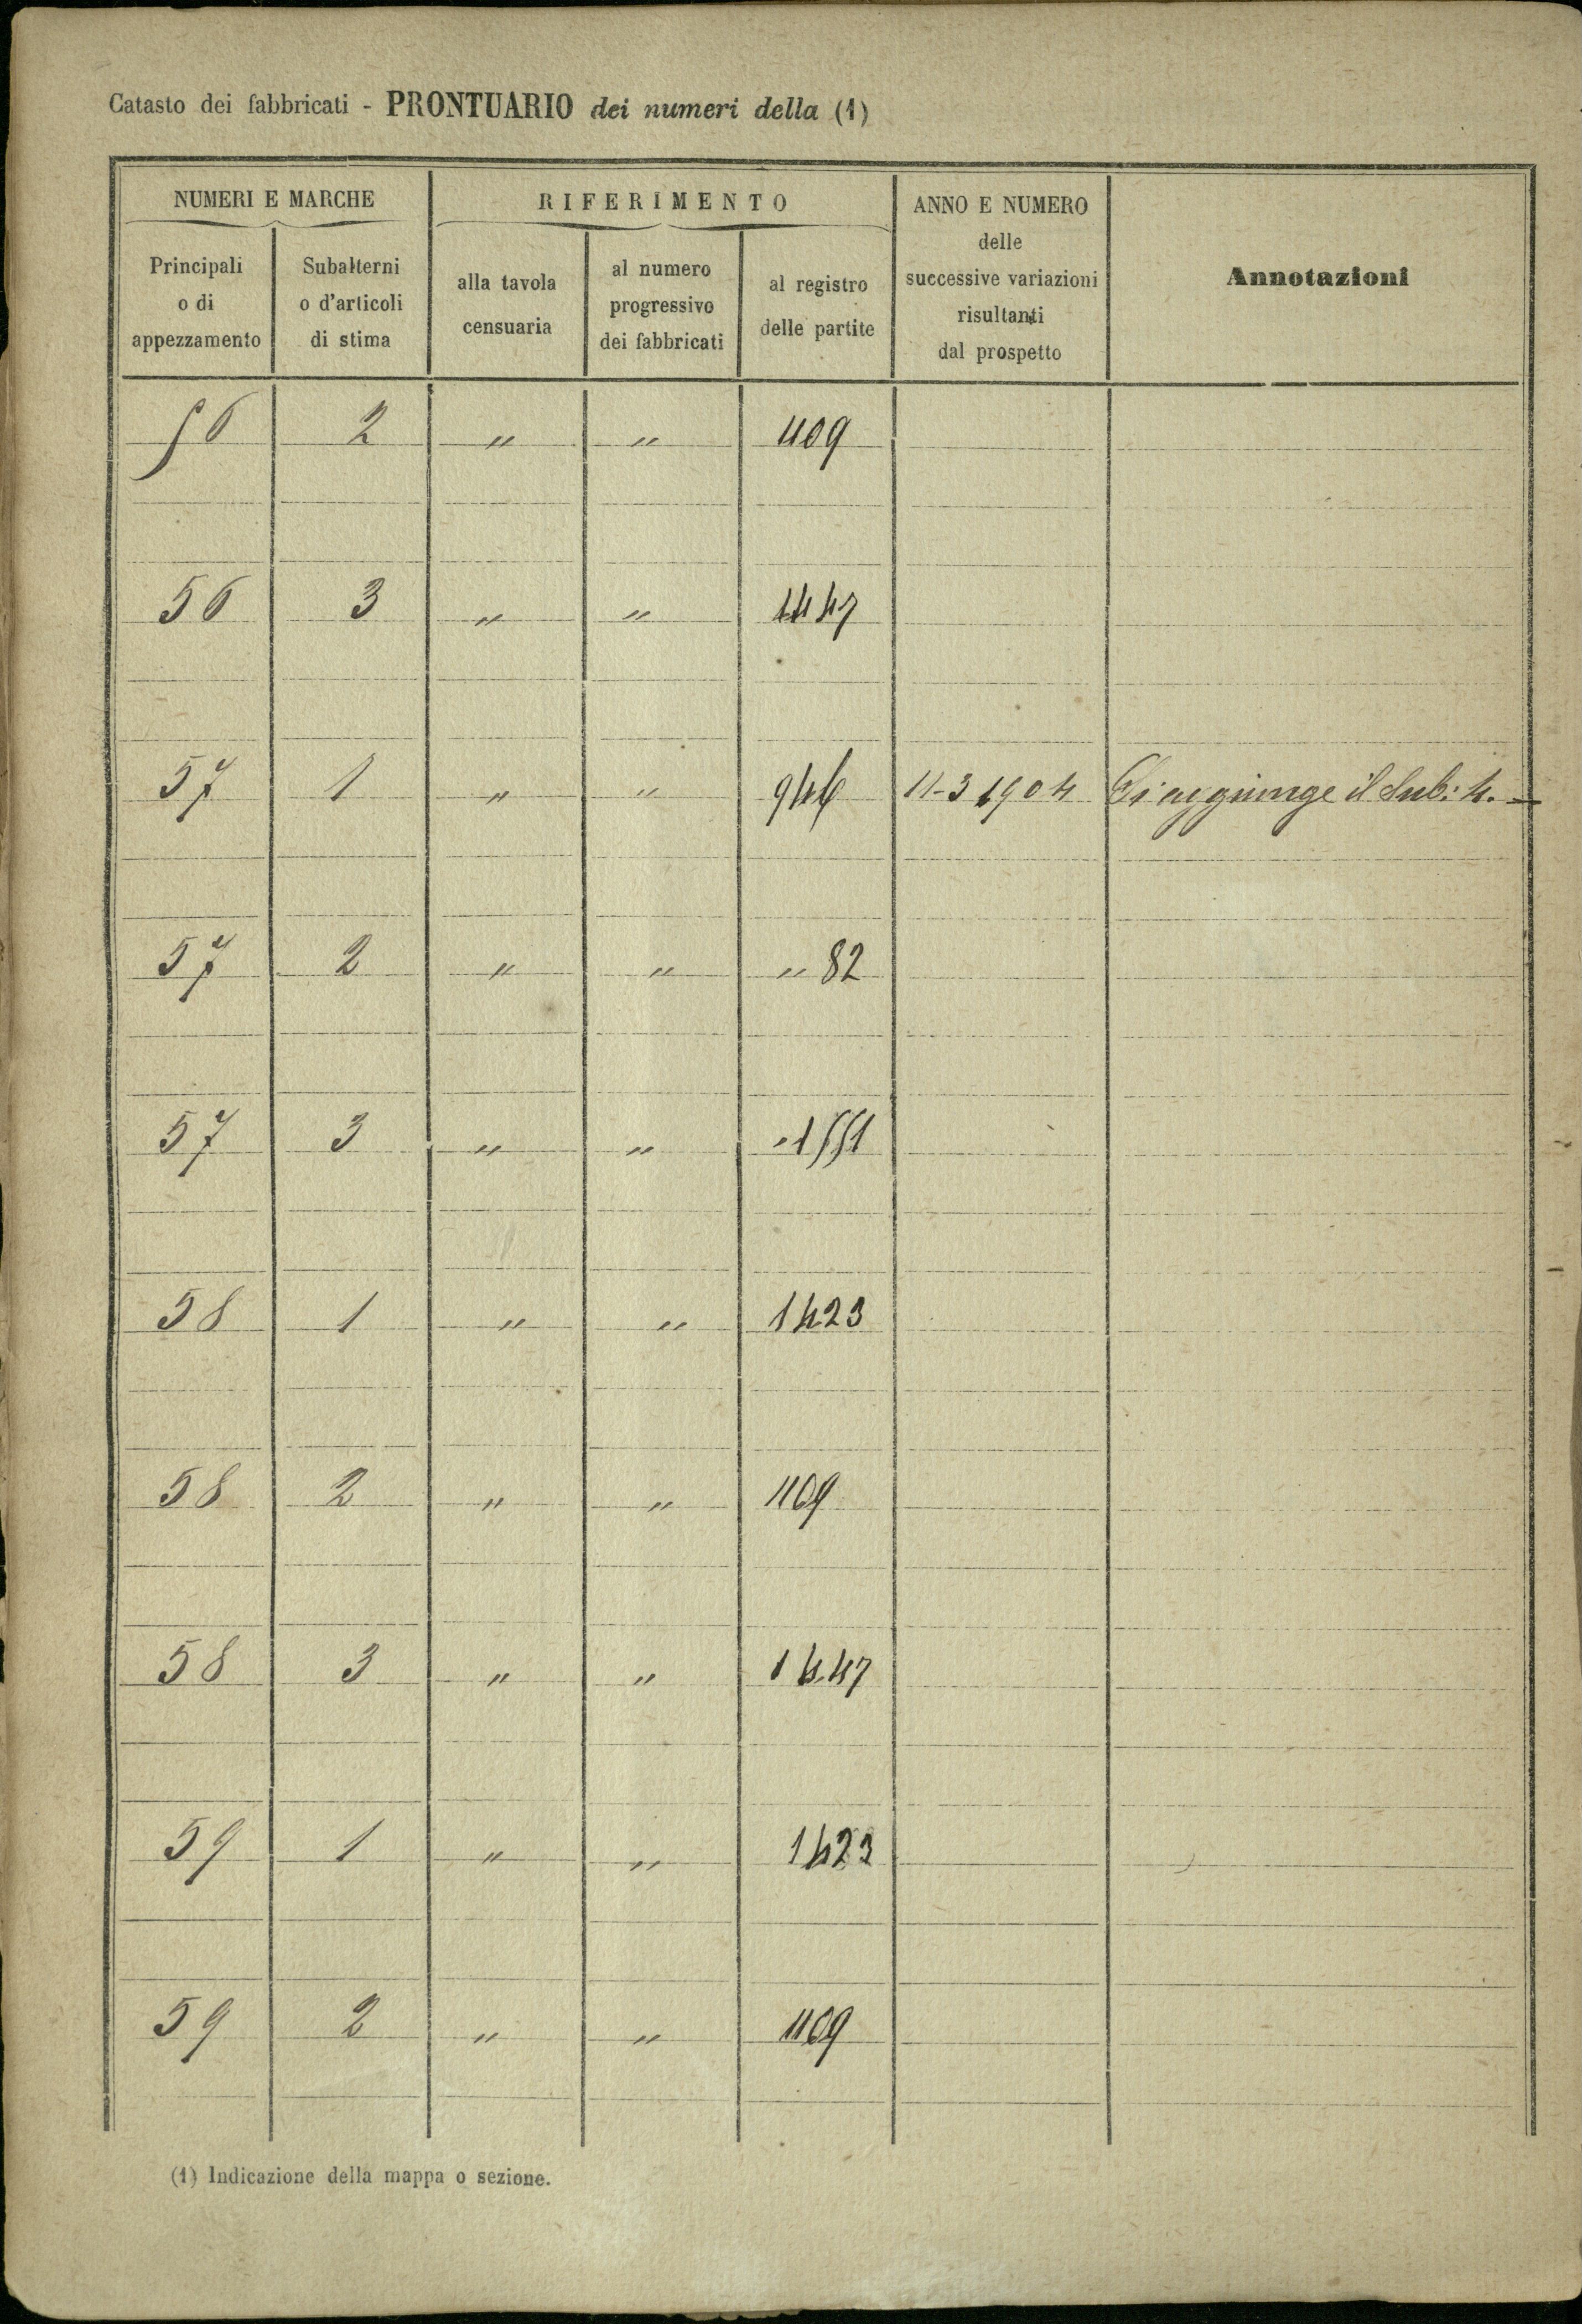 Catasto dei fabbricati - PRONTUARIO dei numeri della (1)
NUMERI E MARCHE
RIFERIMENTO
ANNO E NUMERO
delle
successive variazioni
risultanti
dal prospetto
Annotazioni
Principali
o di
appezzamento
Subalterni
o d'articoli
di stima
alla tavola
censuaria
al numero
progressivo
dei fabbricati
al registro
delle partite
56 2 " " 1109
56 3 " " 1447
57 1 " " 946 11-3 1904 Si aggiunge il Sub: 4. —
57 2 " " " 82
57 3 " " 1551
58 1 " " 1423
58 2 " " 1109
58 3 " " 1447
59 1 " " 1423
59 2 " " 1109
(1) Indicazione della mappa o sezione.